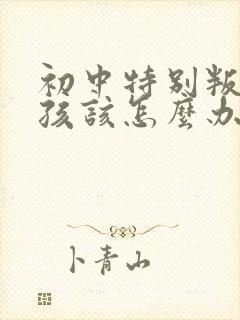 初中特别叛
孩該怎麼办
卜青山